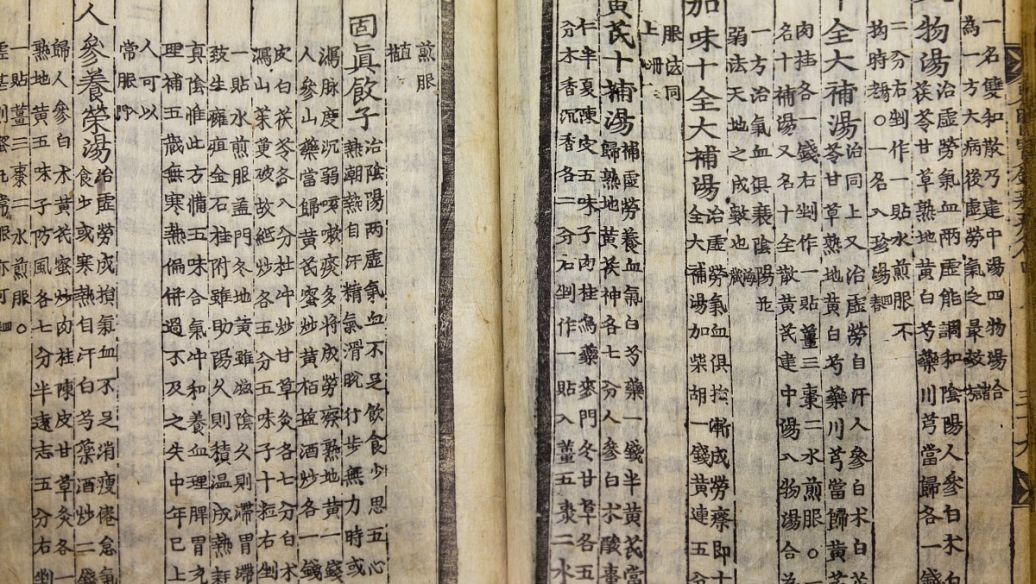 一名雙和散乃建中湯四物湯合
為一方大病後虛勞氣之最效
物湯治虛勞氣血兩虛能調和陰陽人參白朮
茯苓甘草熟地黃白芍藥川芎當歸各一錢
二分右剉作一貼水煎服不
拘時〇一名八珍湯
全大補湯治同上又治虛勞自汗人參白朮白
苓甘草熟地黃白芍藥川芎當歸黃芪
肉桂各一錢右剉作一貼薑三棗二水煎服〇
十補湯又名十全散黃芪建中湯八物湯合
一方治氣血俱衰陰陽並
弱法天地之成數也海藏
加味十全大補湯治虛勞氣血俱損漸成勞瘵即十
全大補湯加柴胡一錢黃連五分
服法同
上
黃芪十補湯補虛勞養血氣白芍藥一錢半黃芪當
歸熟地黃茯神各七分人參白朮酸棗
半夏陳皮五味子肉桂烏藥麥門冬甘草各五
分木香沉香各二分右剉作一貼入薑五棗二水
煎服
固眞飮子治陰陽兩虛氣血不足飮食少思五心
熱潮熱自汗精氣滑脫行步無力時或
瀉脉度沉弱咳嗽痰多將成勞瘵熟地黃一錢
人參山藥當歸黃芪蜜炒黃栢塩酒炒各一錢
皮白茯苓各八分杜冲炒甘草灸各七分白朮
瀉山茱萸破故紙炒各五分五味子十粒右剉
一貼水煎服盖門冬地黃雖滋陰久則滯胃
致生癰疽金石桂附雖助陽久則積溫成熱
眞陰惟此方備五味合氣冲和養血理脾胃充
理補五藏無寒熱偏倂過不及之失中年已上
人可以
常服
人
參養榮湯治虛勞成損氣血不足消瘦倦怠氣
食少或寒熱自汗白芍藥酒炒二錢
歸人參白朮黃芪蜜炒肉桂陳皮甘草灸各一
熟地黃五味子防風各七分半遠志五分右剉
一貼薑三棗二水煎服〇
常服亦可